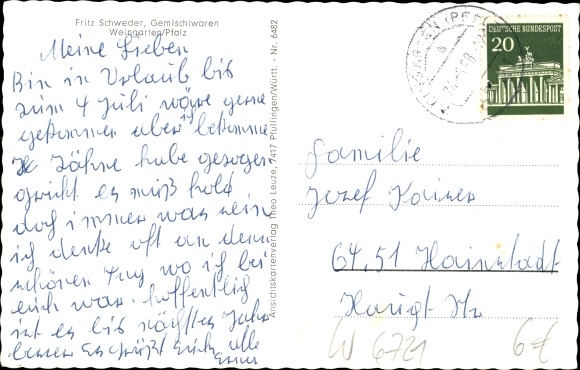 Fritz Schweder, Gemischtwaren
Weingarten/Pfalz
Meine Lieben
Bin in Urlaub bis
zum 4 Juli wäre gerne
gekommen aber bekomme
Zähne habe gezogen
gricht es muß hald
doch immer was sein
ich denke oft an denn
schönen Tag wo ich bei
euch war. hoffentlich
ist es bis nächstes Jahr
besser Es grüßt Euch alle
Ansichtskartenverlag Theo Leuze, 7417 Pfullingen/Württ. - Nr. 6482
DEUTSCHE BUNDESPOST
20
WEINGARTEN (PFALZ)
Familie
Josef Kaiser
64,51 Hainstadt
Haugt Str
W 6721
6€